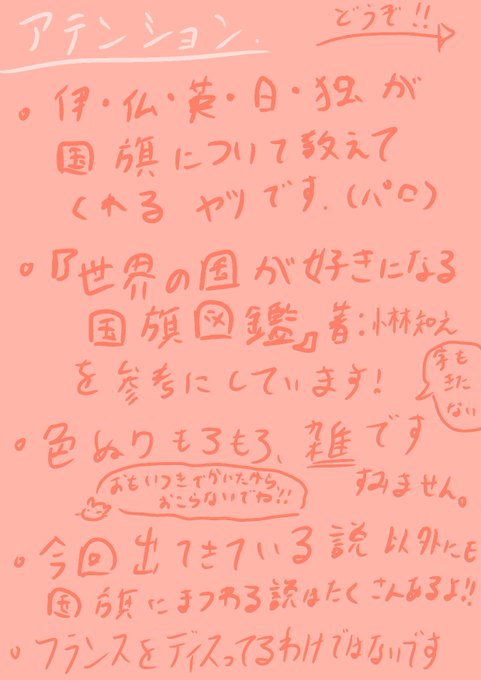 アテンション.
どうぞ!!
・伊・仏・英・日・独が
国旗について教えて
くれるヤツです.(パロ)
・『世界の国が好きになる
国旗図鑑』著:小林知え
を参考にしています!
字も
きた
ない
・色ぬりもろもろ、雑です
すみません。
おもいつきでかいたから、
おこらないでね!!
・今回出てきている説以外にも
国旗にまつわる説はたくさんあるよ!!
・フランスをディスってるわけではないです